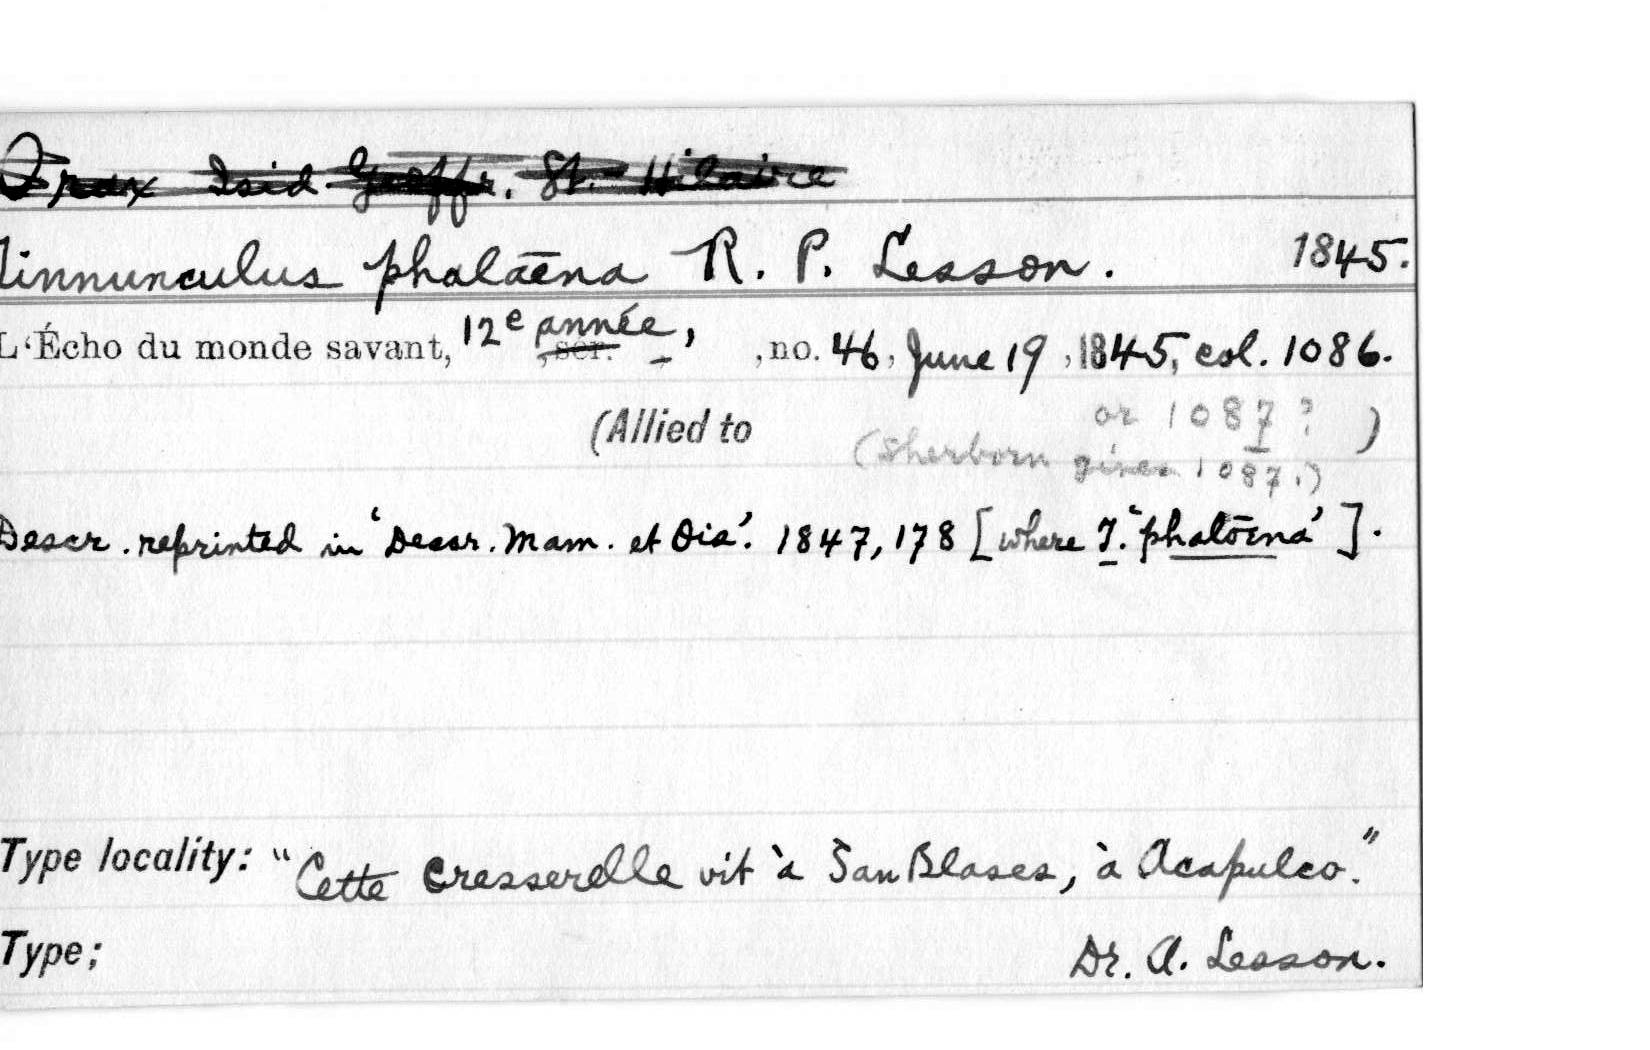 Orax Isid Geoffr. St. Hilaire
Tinnunculus phalaēna R. P. Lesson. 1845.
L'Écho du monde savant, 12e année, ser. , no. 46, June 19, 1845, col. 1086.
(Allied to or 1087? )
(Sherborn gives 1087.)
Descr. reprinted in 'Descr. Mam. et Ois.' 1847, 178 [where T. 'phalōena'].
Type locality: "Cette Cresserelle vit à San Blases, à Acapulco."
Type; Dr. A. Lesson.